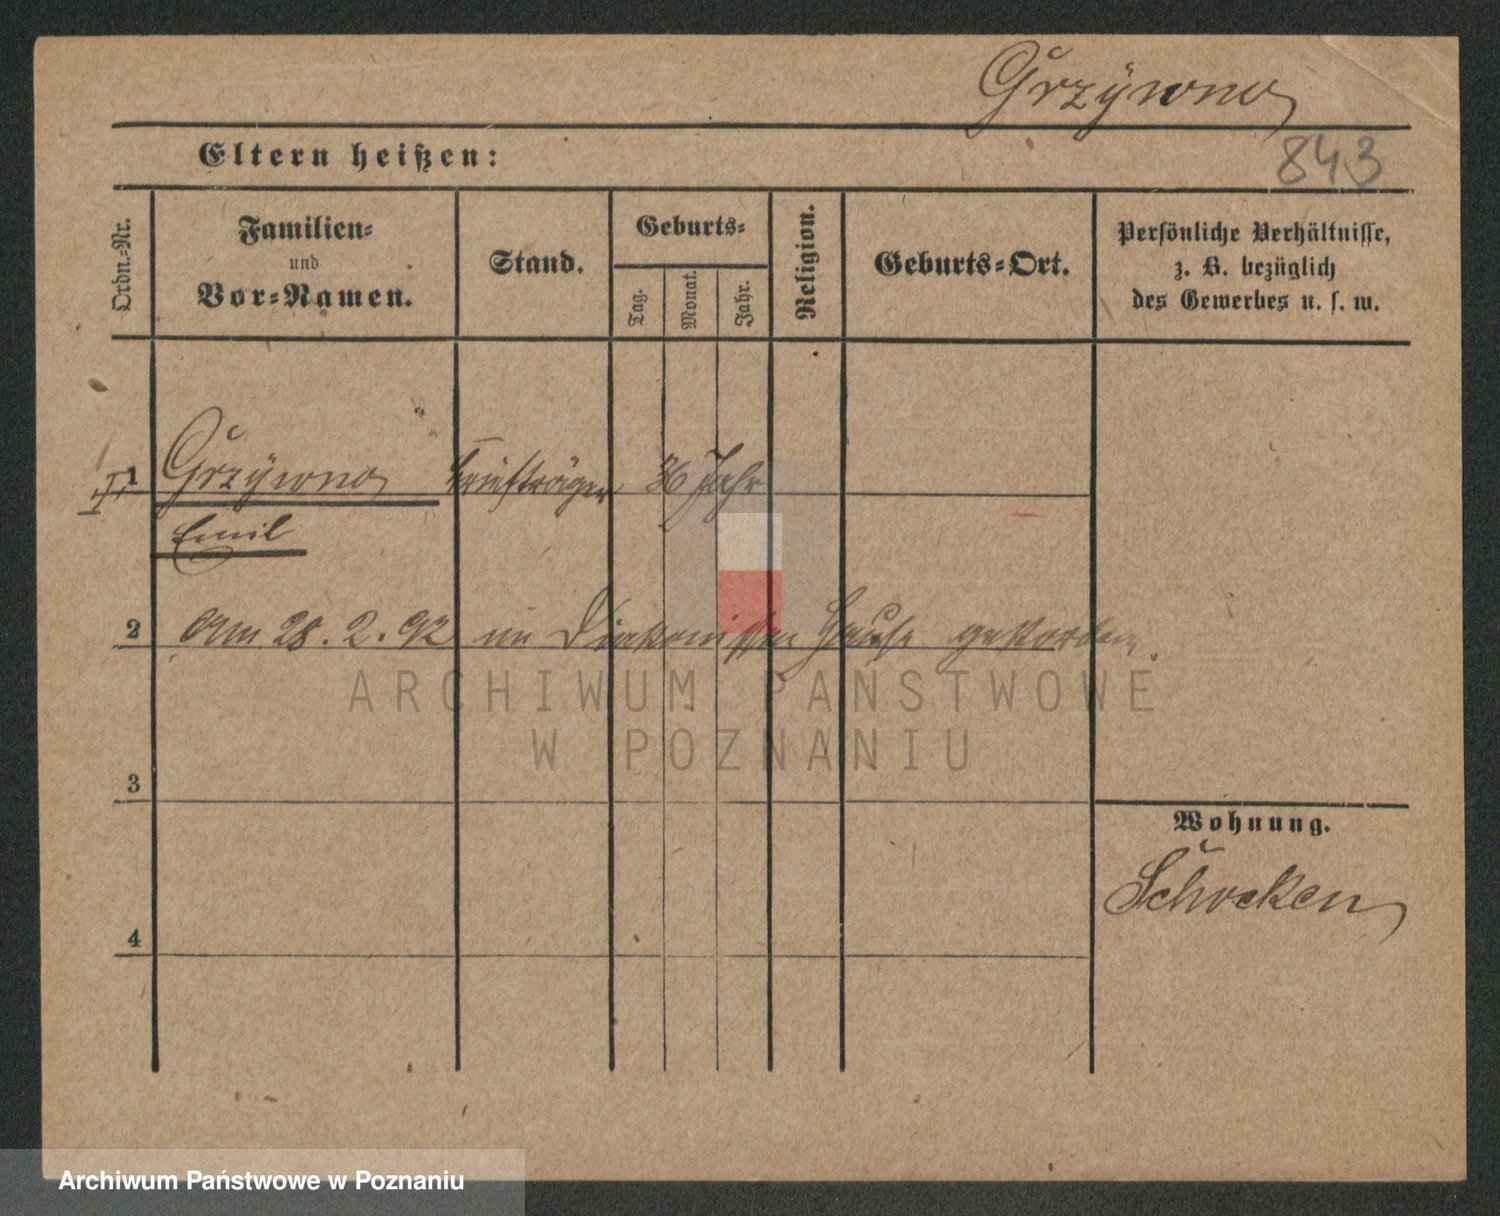 Grzÿwno
843
Eltern heißen:
Ordn.-Nr.
Familien-
und
Vor-Namen.
Stand.
Geburts-
Tag.
Monat.
Jahr.
Religion.
Geburts-Ort.
Persönliche Verhältnisse,
z. B. bezüglich
des Gewerbes u. s. w.
II 1 Grzÿwno Briefträger 36 Jahr
Emil
2 Am 28.2.92 im Diakonissen Hause gestorben.
ARCHIWUM PAŃSTWOWE
W POZNANIU
3
Wohnung.
Schocken
4
Archiwum Państwowe w Poznaniu